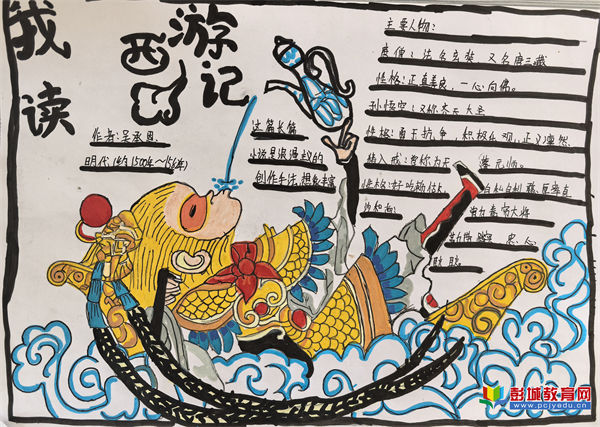 我读
西游记
作者:吴承恩。
明代(约1500年~1561年)
这篇长篇
小说是浪漫主义的
创作手法,想象丰富
主要人物:
唐僧:法名玄奘,又名唐三藏
性格:正直善良,一心向佛。
孙悟空:又称齐天大圣
性格:勇于抗争,积极乐观,正义凛然
猪八戒:曾称为天蓬元帅。
性格:好吃懒做,自私自利
沙和尚:
彭城教育网
www.pcjyedu.cn